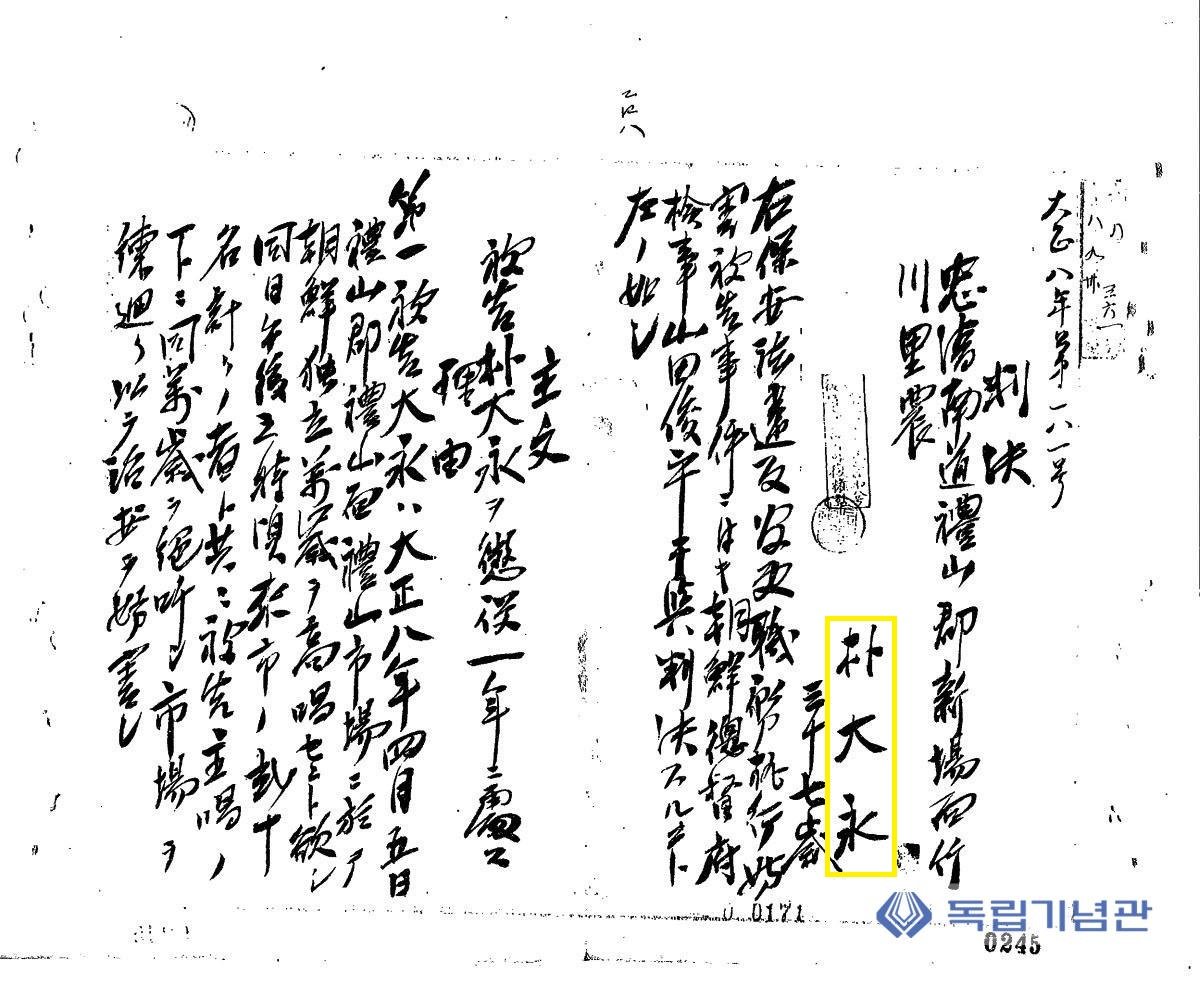 大正八年第一八一号
判決
忠淸南道禮山郡新場面竹
川里農
朴大永
三十七歲
右保安法違反及公吏職務執行妨
害被告事件ニ付キ朝鮮總督府
檢事山田俊平干與判決スルコト
左ノ如シ
主文
被告朴大永ヲ懲役一年ニ處ス
理由
第一被告大永ハ大正八年四月五日
禮山郡禮山面禮山市場ニ於テ
朝鮮独立萬歲ヲ高唱セント欲シ
同日午後三時頃來市ノ数十
名計リノ者ト共ニ被告主唱ノ
下ニ同萬歲ヲ絕叫シ市場ヲ
練廻リ以テ治安ヲ妨害シ
0171
0245
독립기념관